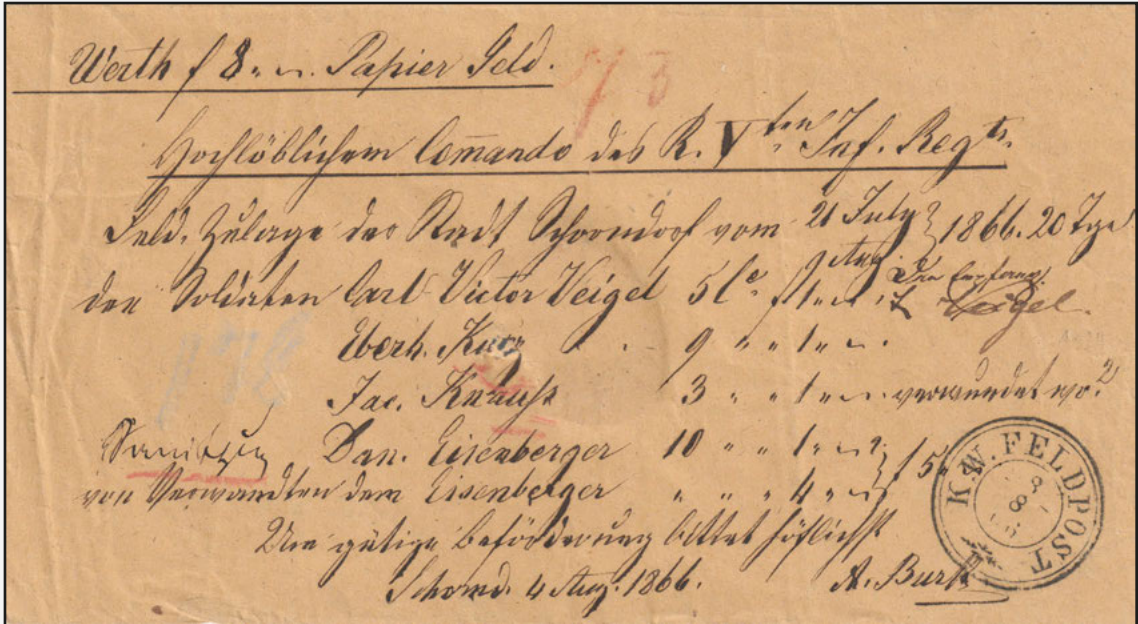 Werth f 8 „ „ Papier Geld.
Hochlöblichem Commando des K. Vten Inf. Regts.
Feld-Zulage der Stadt Schorndorf vom 21 July 1866. 20 Tge
Aug
den Soldaten Carl Victor Veigel 5 Ce f 1 „ „ Veigel
Eberh. Kurz 9 „ „ 1 „ „
Jac. Knauß 3 „ „ 1 „ „ verwundet wo?
Dan. Eisenberger 10 „ „ 1 „ „ f 5
von Verwandten dem Eisenberger „ „ „ 4 „ „
Um gütige Beförderung bittet höflichst
Schornd. 4 Aug. 1866. A. Burk
K.W. FELDPOST